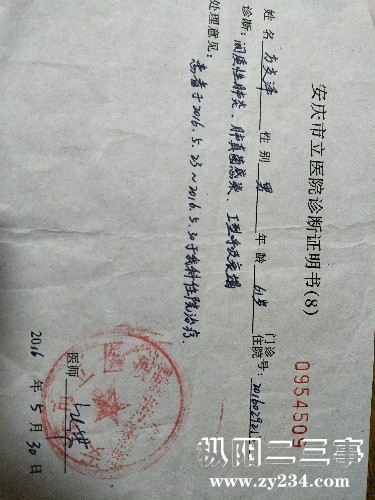 安庆市立医院诊断证明书(8)
0954509
姓名 方文泽 性别 男 年龄 61岁 门诊 住院 号:
诊断: 间质性肺炎、肺真菌感染、I型呼吸衰竭
处理意见:
患者于2016.5.23~2016.5.30于我科住院治疗.
医师
2016 年 5 月 30 日
枞阳二三事
www.zy234.com